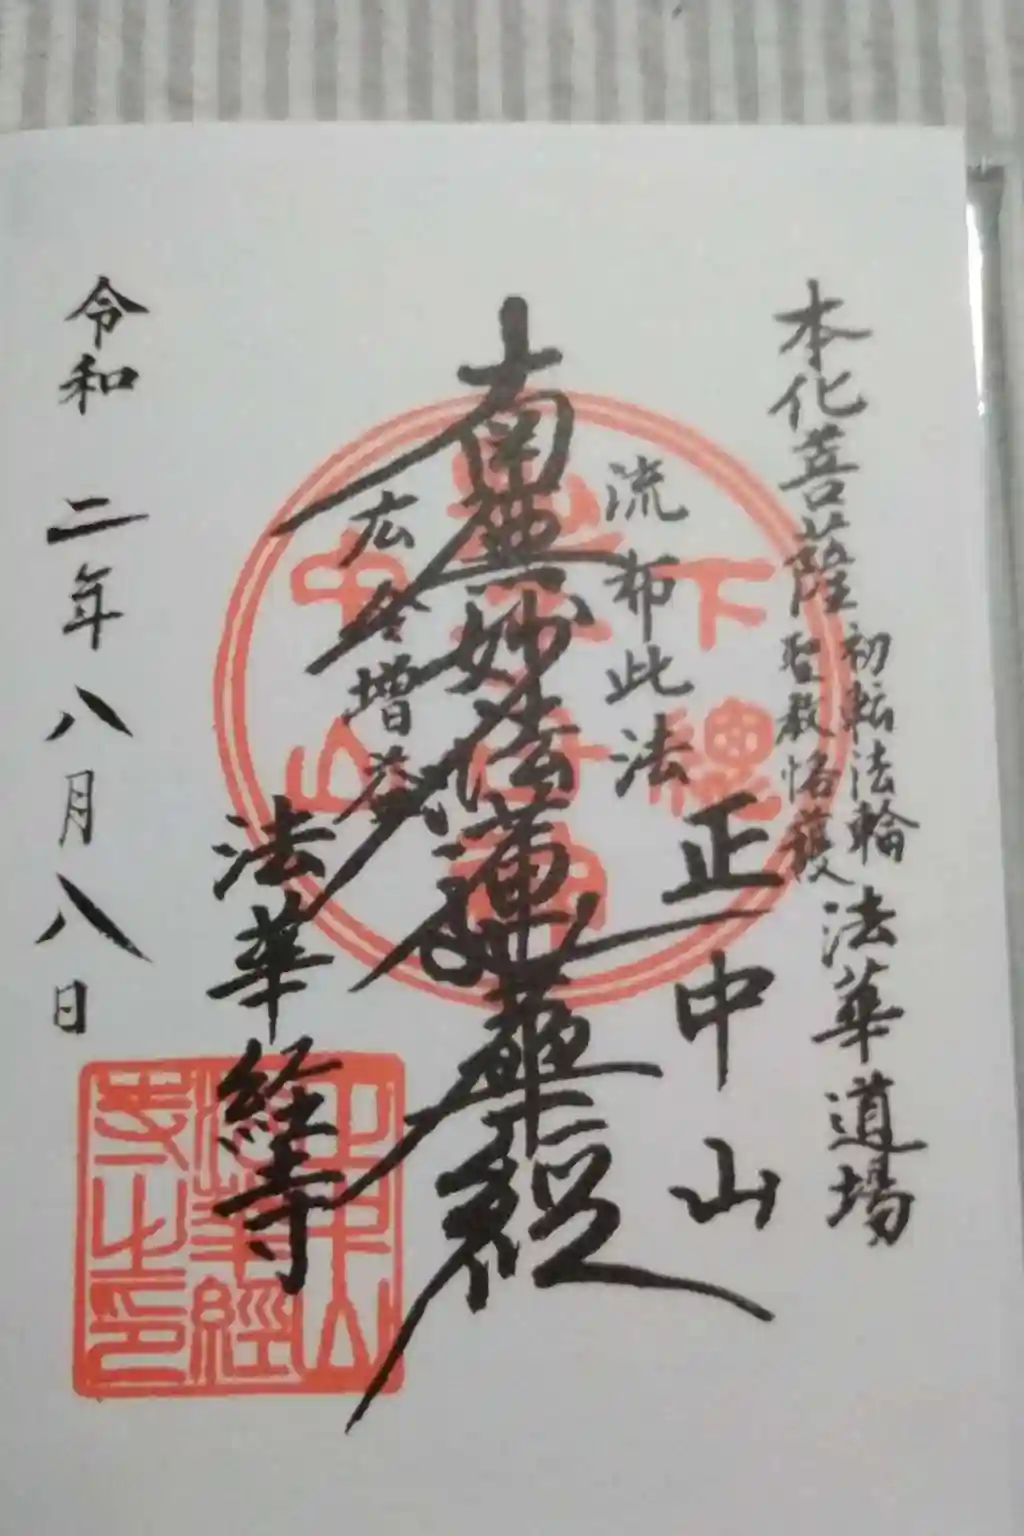 本化菩薩初転法輪法華道場
聖教恪護
正中山
流布此法
南無妙法蓮華経
広令増益
法華経寺
令和二年八月八日
下總
中山
正中山
法華經
寺之印